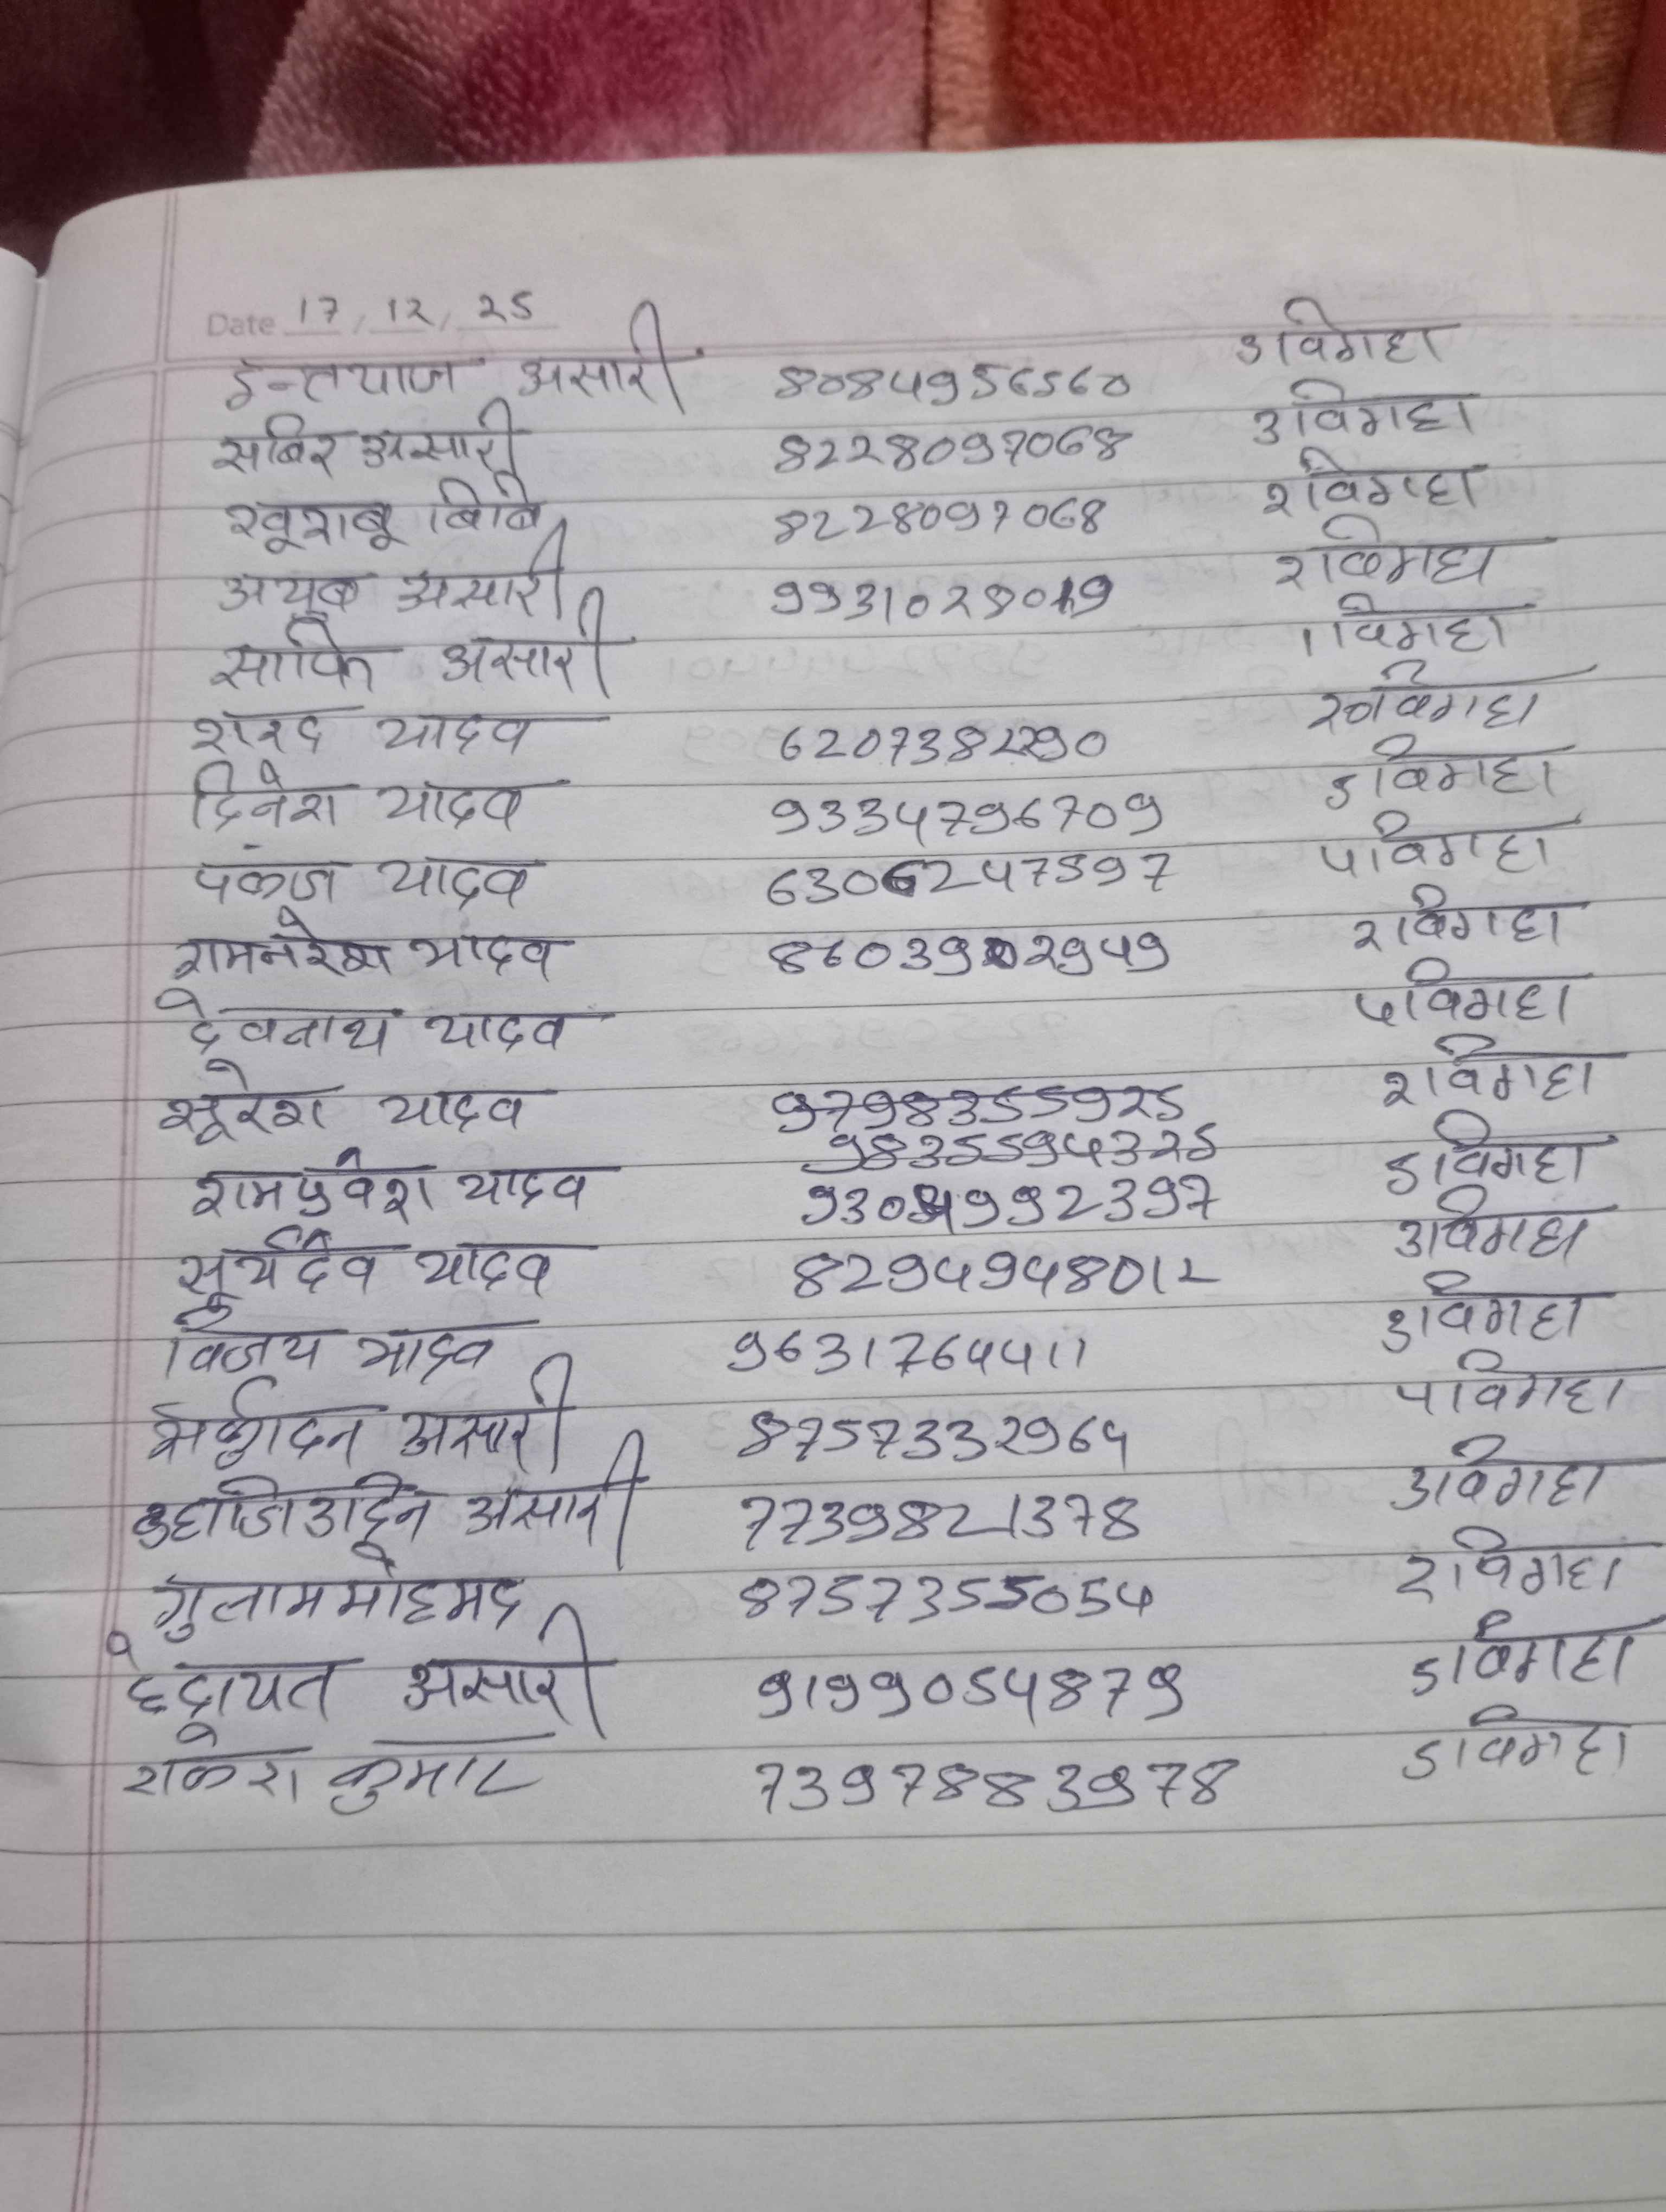 Date 17/12/25
इन्तयाज असारी 8084956560 3विगहा
सबिर असारी 8228097068 3विगहा
खूशबू बिबि 8228097068 2विगहा
अयूब असारी 9931028019 2विगहा
साफि असारी 1विगहा
शरद यादव 6207382290 विगहा
दिनेश यादव 9334796709 5विगहा
पंकज यादव 6306247597 4विगहा
रामनरेश यादव 8603902949 2विगहा
देवनाथ यादव 4विगहा
सूरेश यादव 9798355925 2विगहा
9835594325
रामप्रवेश यादव 9304992397 5विगहा
सूर्यदेव यादव 8294948012 3विगहा
विजय यादव 9631764411 3विगहा
असारी 8757332964 4विगहा
अंसारी 7739821378 3विगहा
गुलाम मोहमद 8757355054 2विगहा
हेदायत असारी 9199054879 5विगहा
राकेश कुमार 7397883978 5विगहा